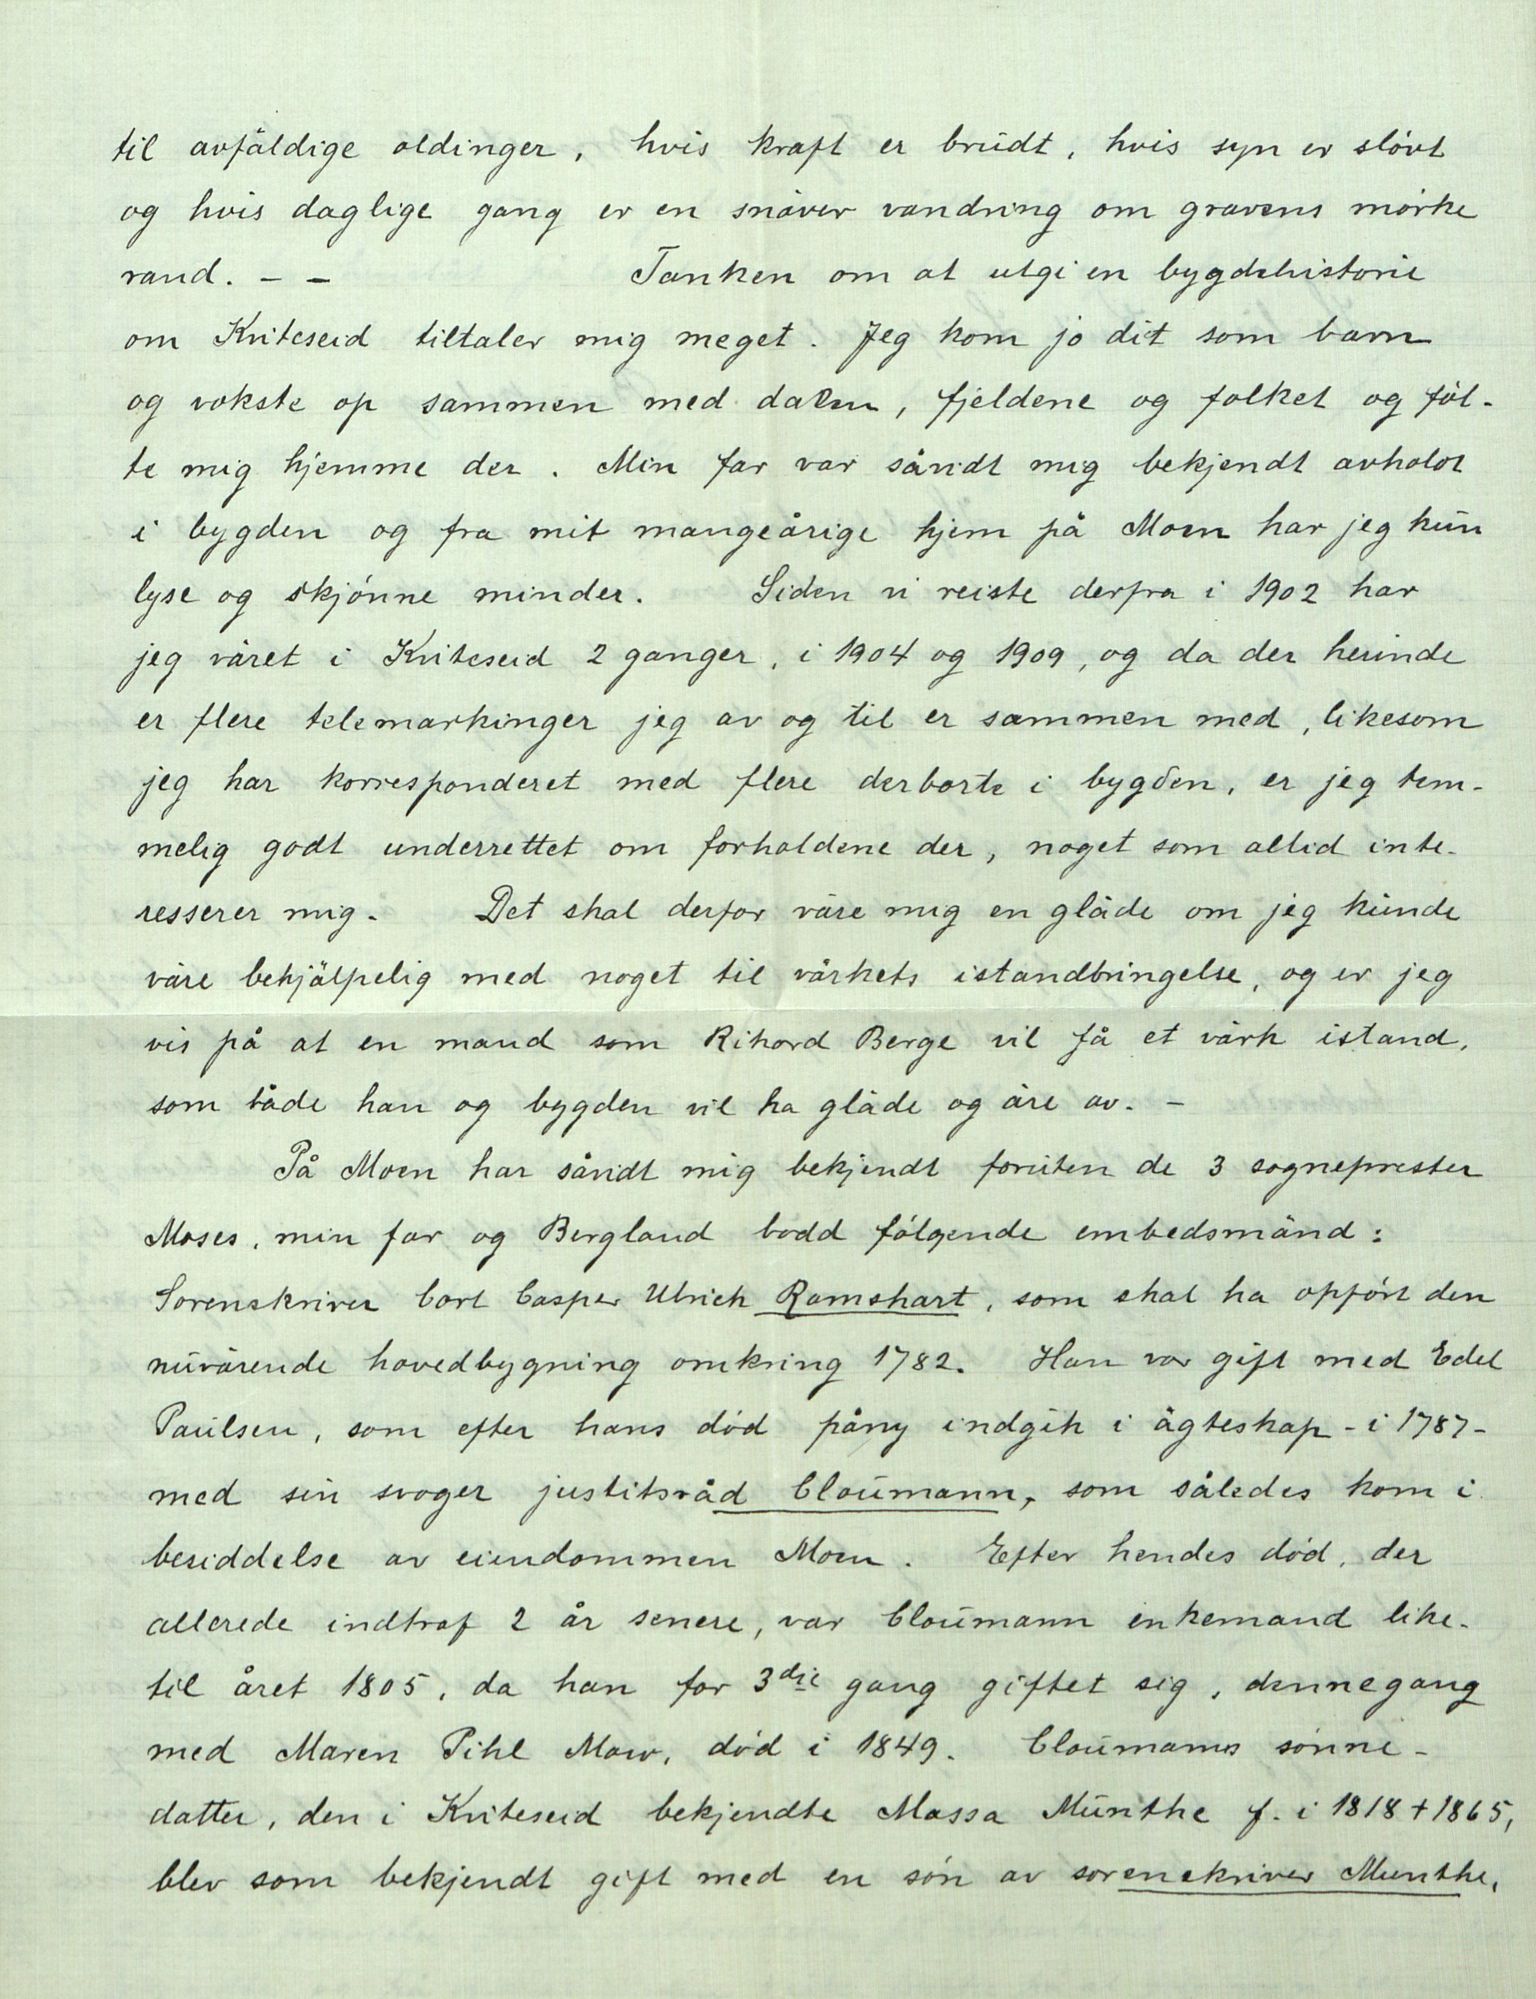 til avfäldige oldinger, hvis kraft er brudt, hvis syn er sløvt
og hvis daglige gang er en snäver vandring om gravens mørke
rand. – – Tanken om at utgi en bygdehistorie
om Kviteseid tiltaler mig meget. Jeg kom jo dit som barn
og vokste op sammen med dalen, fjeldene og folket og føl-
te mig hjemme der. Min far var såvidt mig bekjendt avholdt
i bygden og fra mit mangeårige hjem på Moen har jeg kun
lyse og skjønne minder. Siden vi reiste derfra i 1902 har
jeg väret i Kviteseid 2 ganger, i 1904 og 1909, og da der herinde
er flere telemarkinger jeg av og til er sammen med, likesom
jeg har korresponderet med flere derborte i bygden, er jeg tem-
melig godt underrettet om forholdene der, noget som altid inte-
resserer mig. Det skal derfor väre mig en gläde om jeg kunde
väre behjälpelig med noget til värkets istandbringelse, og er jeg
vis på at en mand som Rikard Berge vil få et värk istand,
som både han og bygden vil ha gläde og äre av. –
På Moen har såvidt mig bekjendt foruten de 3 sogneprester
Moses, min far og Bergland bodd følgende embedsmänd:
Sorenskriver Carl Casper Ulrich Ramshart, som skal ha opført den
nuvärende hovedbygning omkring 1782. Han var gift med Edel
Paulsen, som efter hans død påny indgik i ägteskap - i 1787 -
med sin svoger justitsråd Cloumann, som således kom i
besiddelse av eiendommen Moen. Efter hendes død, der
allerede indtraf 2 år senere, var Cloumann enkemand like-
til året 1805, da han for 3die gang giftet sig, dennegang
med Maren Pihl Maw, død i 1849. Cloumanns sønne-
datter, den i Kviteseid bekjendte Massa Munthe f. i 1818 + 1865,
blev som bekjendt gift med en søn av sorenskriver Munthe,